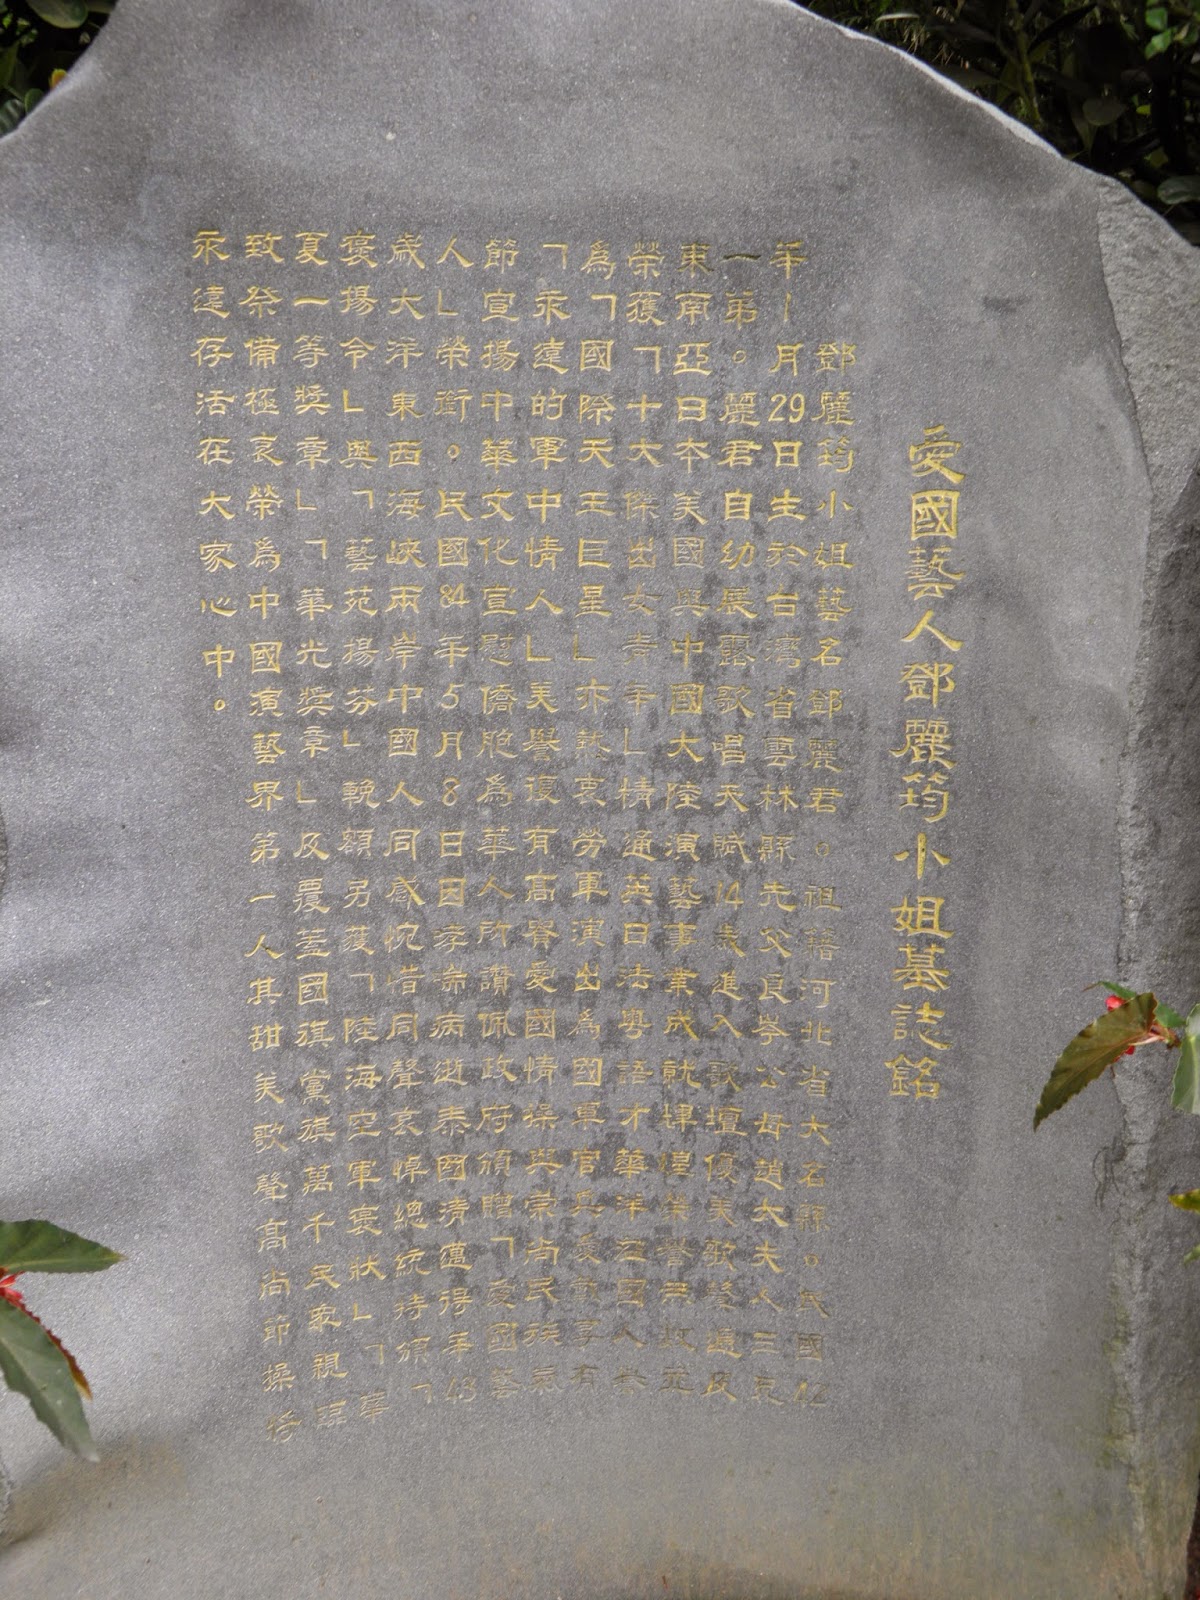 愛國藝人鄧麗筠小姐墓誌銘
鄧麗筠小姐藝名鄧麗君。祖籍河北省大名縣。民國42
年1月29日生於台灣省雲林縣先父良岑公母趙太夫人三兄
一弟。麗君自幼展露歌唱天賦14歲進入歌壇優美歌聲遍及
東南亞日本美國與中國大陸演藝事業成就輝煌榮譽無數並
榮獲「十大傑出女青年」精通英日法粵語才華洋溢國人
為「國際天王巨星」亦熱衷勞軍演出為國軍官兵愛戴享有
「永遠的軍中情人」美譽復有高脊愛國情操與崇尚民族氣
節宣揚中華文化宣慰僑胞為華人所讚佩政府頒贈「愛國藝
人」榮銜。民國84年5月8日因哮喘病逝泰國清邁得年43
歲大洋東西海峽兩岸中國人同感惋惜同聲哀悼總統特頒「
褒揚令」與「藝苑揚芬」輓額另獲「陸海空軍褒狀」「華
夏一等獎章」「華光獎章」及覆蓋國旗黨旗萬千民眾親臨
致祭備極哀榮為中國演藝界第一人其甜美歌聲高尚節操將
永遠存活在大家心中。